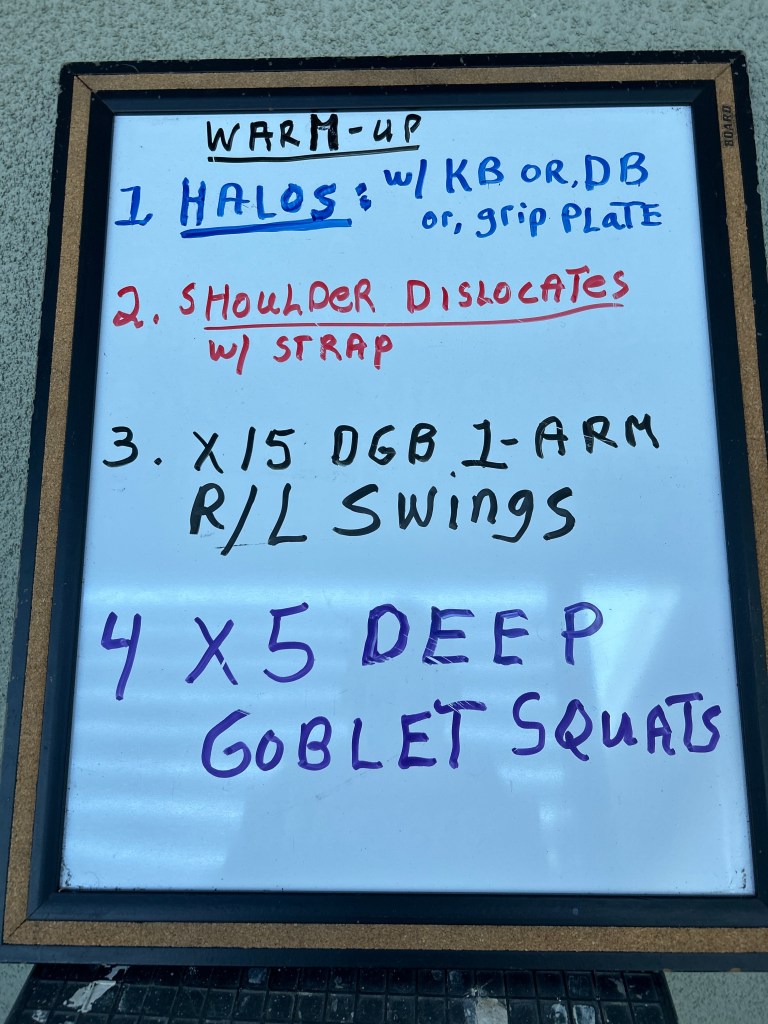 WARM-UP
1 HALOS: w/ KB OR, DB
or, grip PLATE
2. SHOULDER DISLOCATES
w/ STRAP
3. X15 DGB 1-ARM
R/L Swings
4 X5 DEEP
GOBLET SQUATS
BOARD